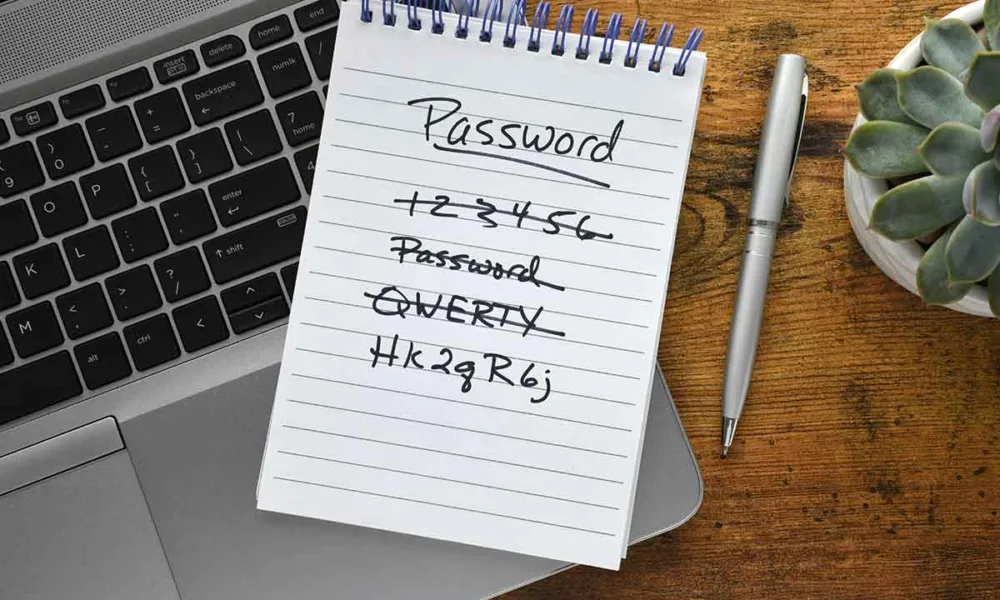 Password
123456
Password
QWERTY
Hk2qR6j
home
end
delete
insert
numlk
backspace
7
home
enter
shift
alt
ctrl
9
)
0
-
+
=
O
P
{
[
}
]
|
\
K
L
:
;
"
'
M
<
,
>
.
?
/
4